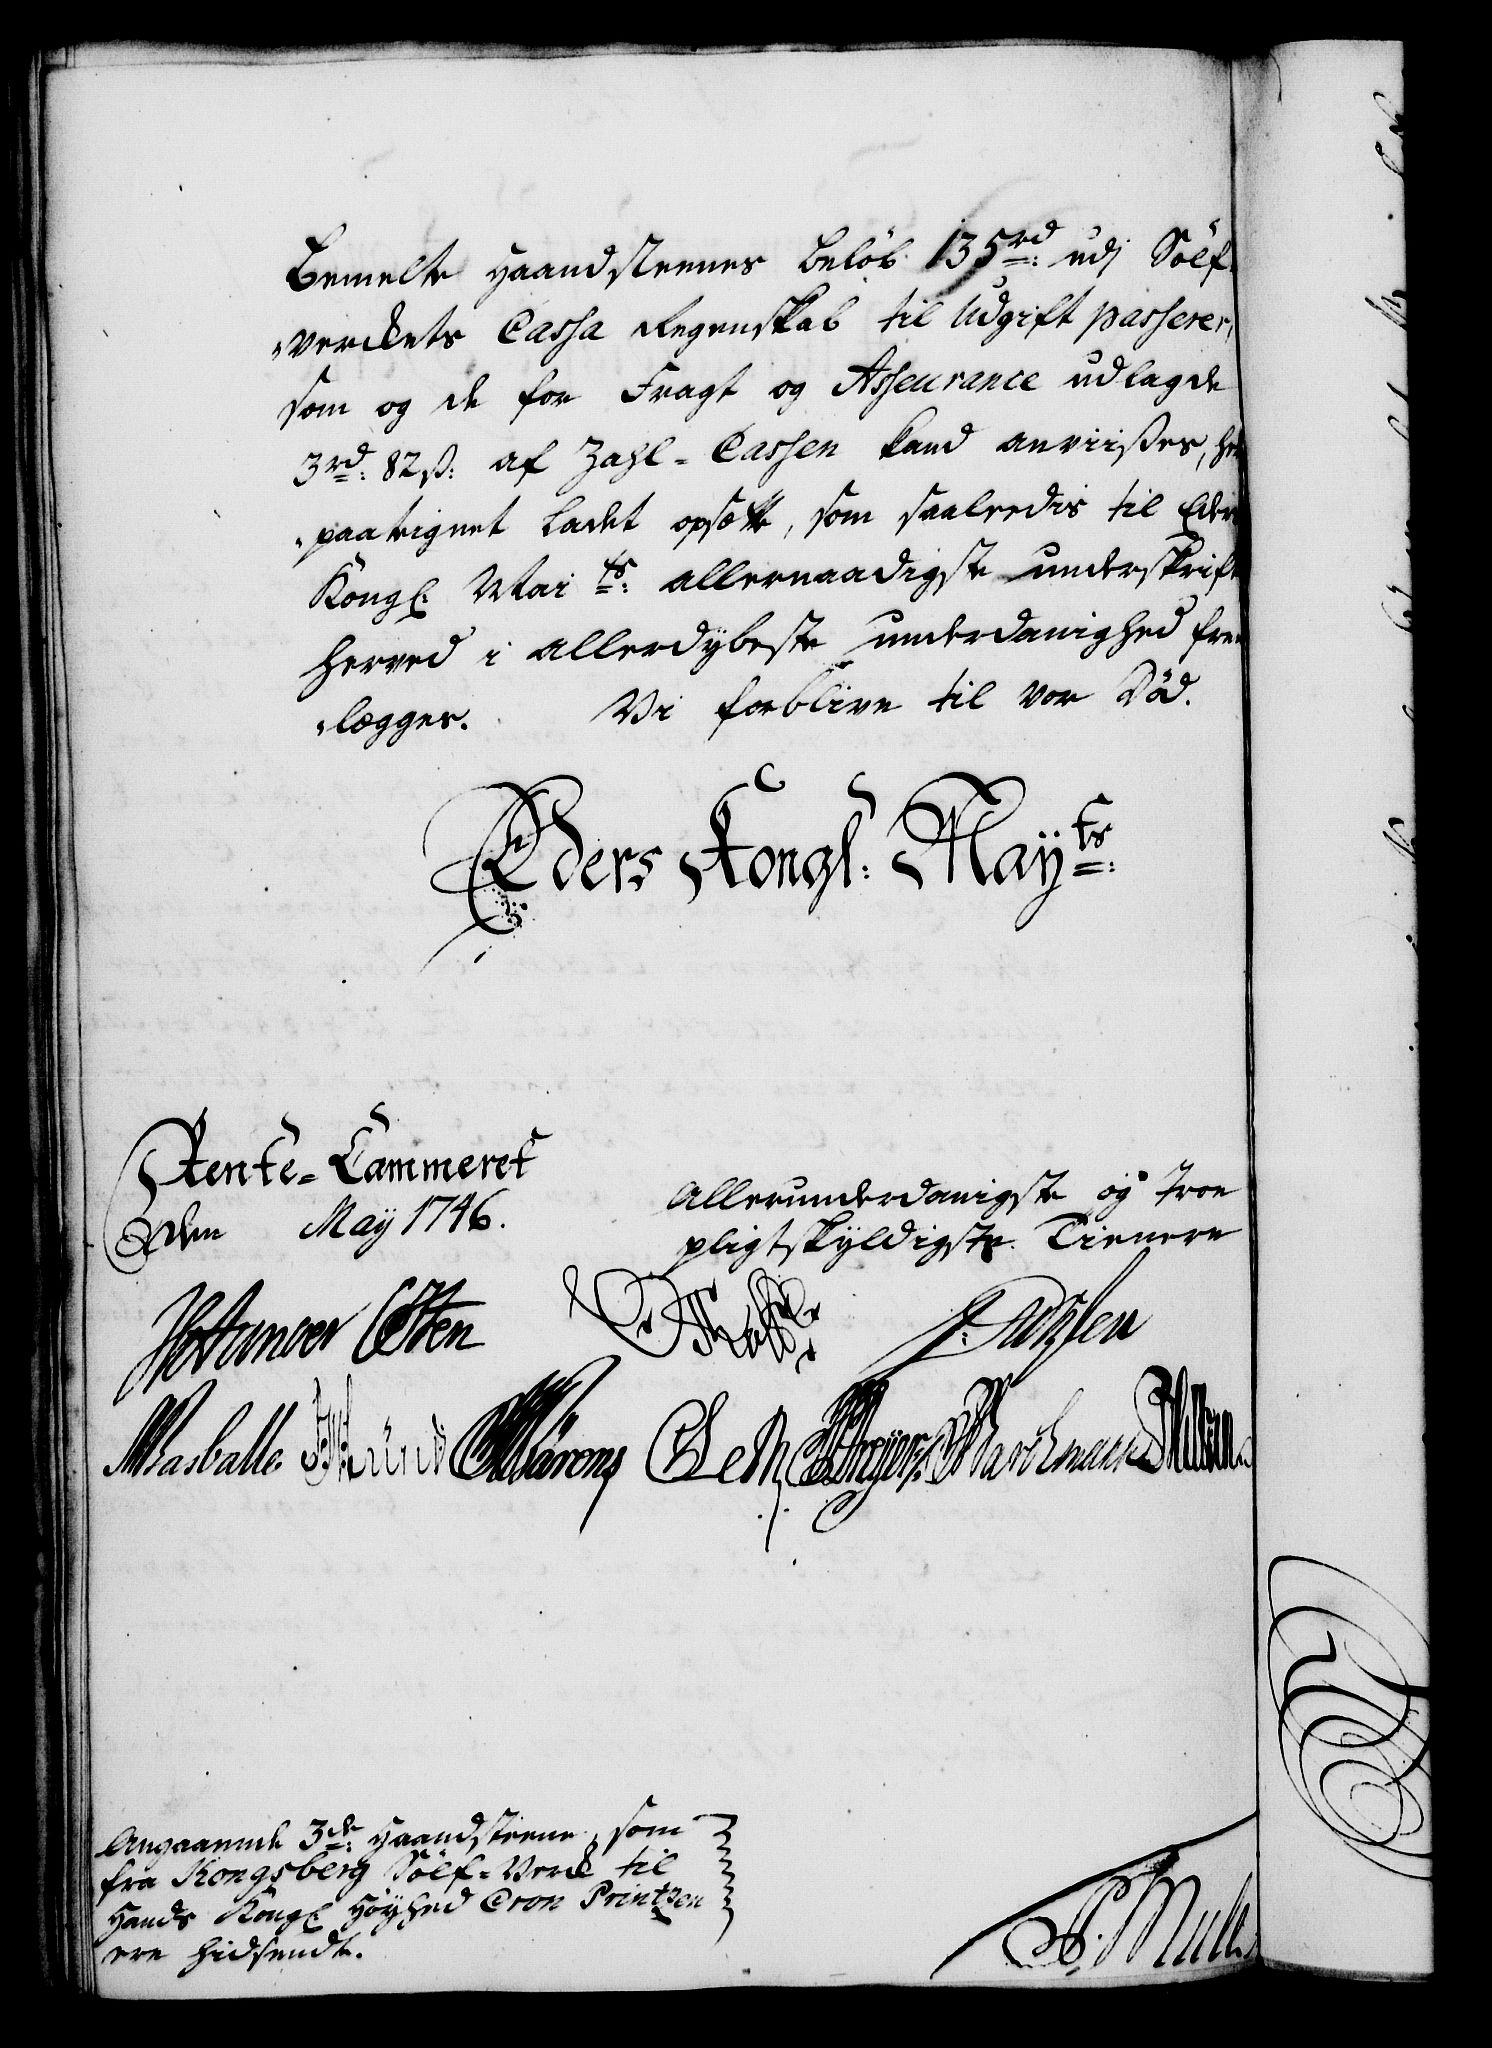 Bemelte Haandsteenes Beløb 135rd: udj Sølf-
„verckets Cassa Regenskab til Udgift passerer,
som og de for Fragt og Asseurance udlagde
3rd: 82ß: af Zahl-Cassen kand anviises, her
„paa teignet ladet opsætte, som saaledis til Eders
Kongl: Mai ts: allernaadigste underskrift
herved i allerdybeste underdanighed frem
„legges. Vi forblive til vor Död.
Eders Kongl: Maÿts:
Rente-Cammeret
Den Maÿ 1746.
Allerunderdanigste og Troe
pligtskÿldigste Tienere
Holst
Angaaende 3de: Haandsteene, som
fra Kongsberg Sölf-Verck til
Hands Kongl Höÿhed Cron Printzen
ere hidsendt.